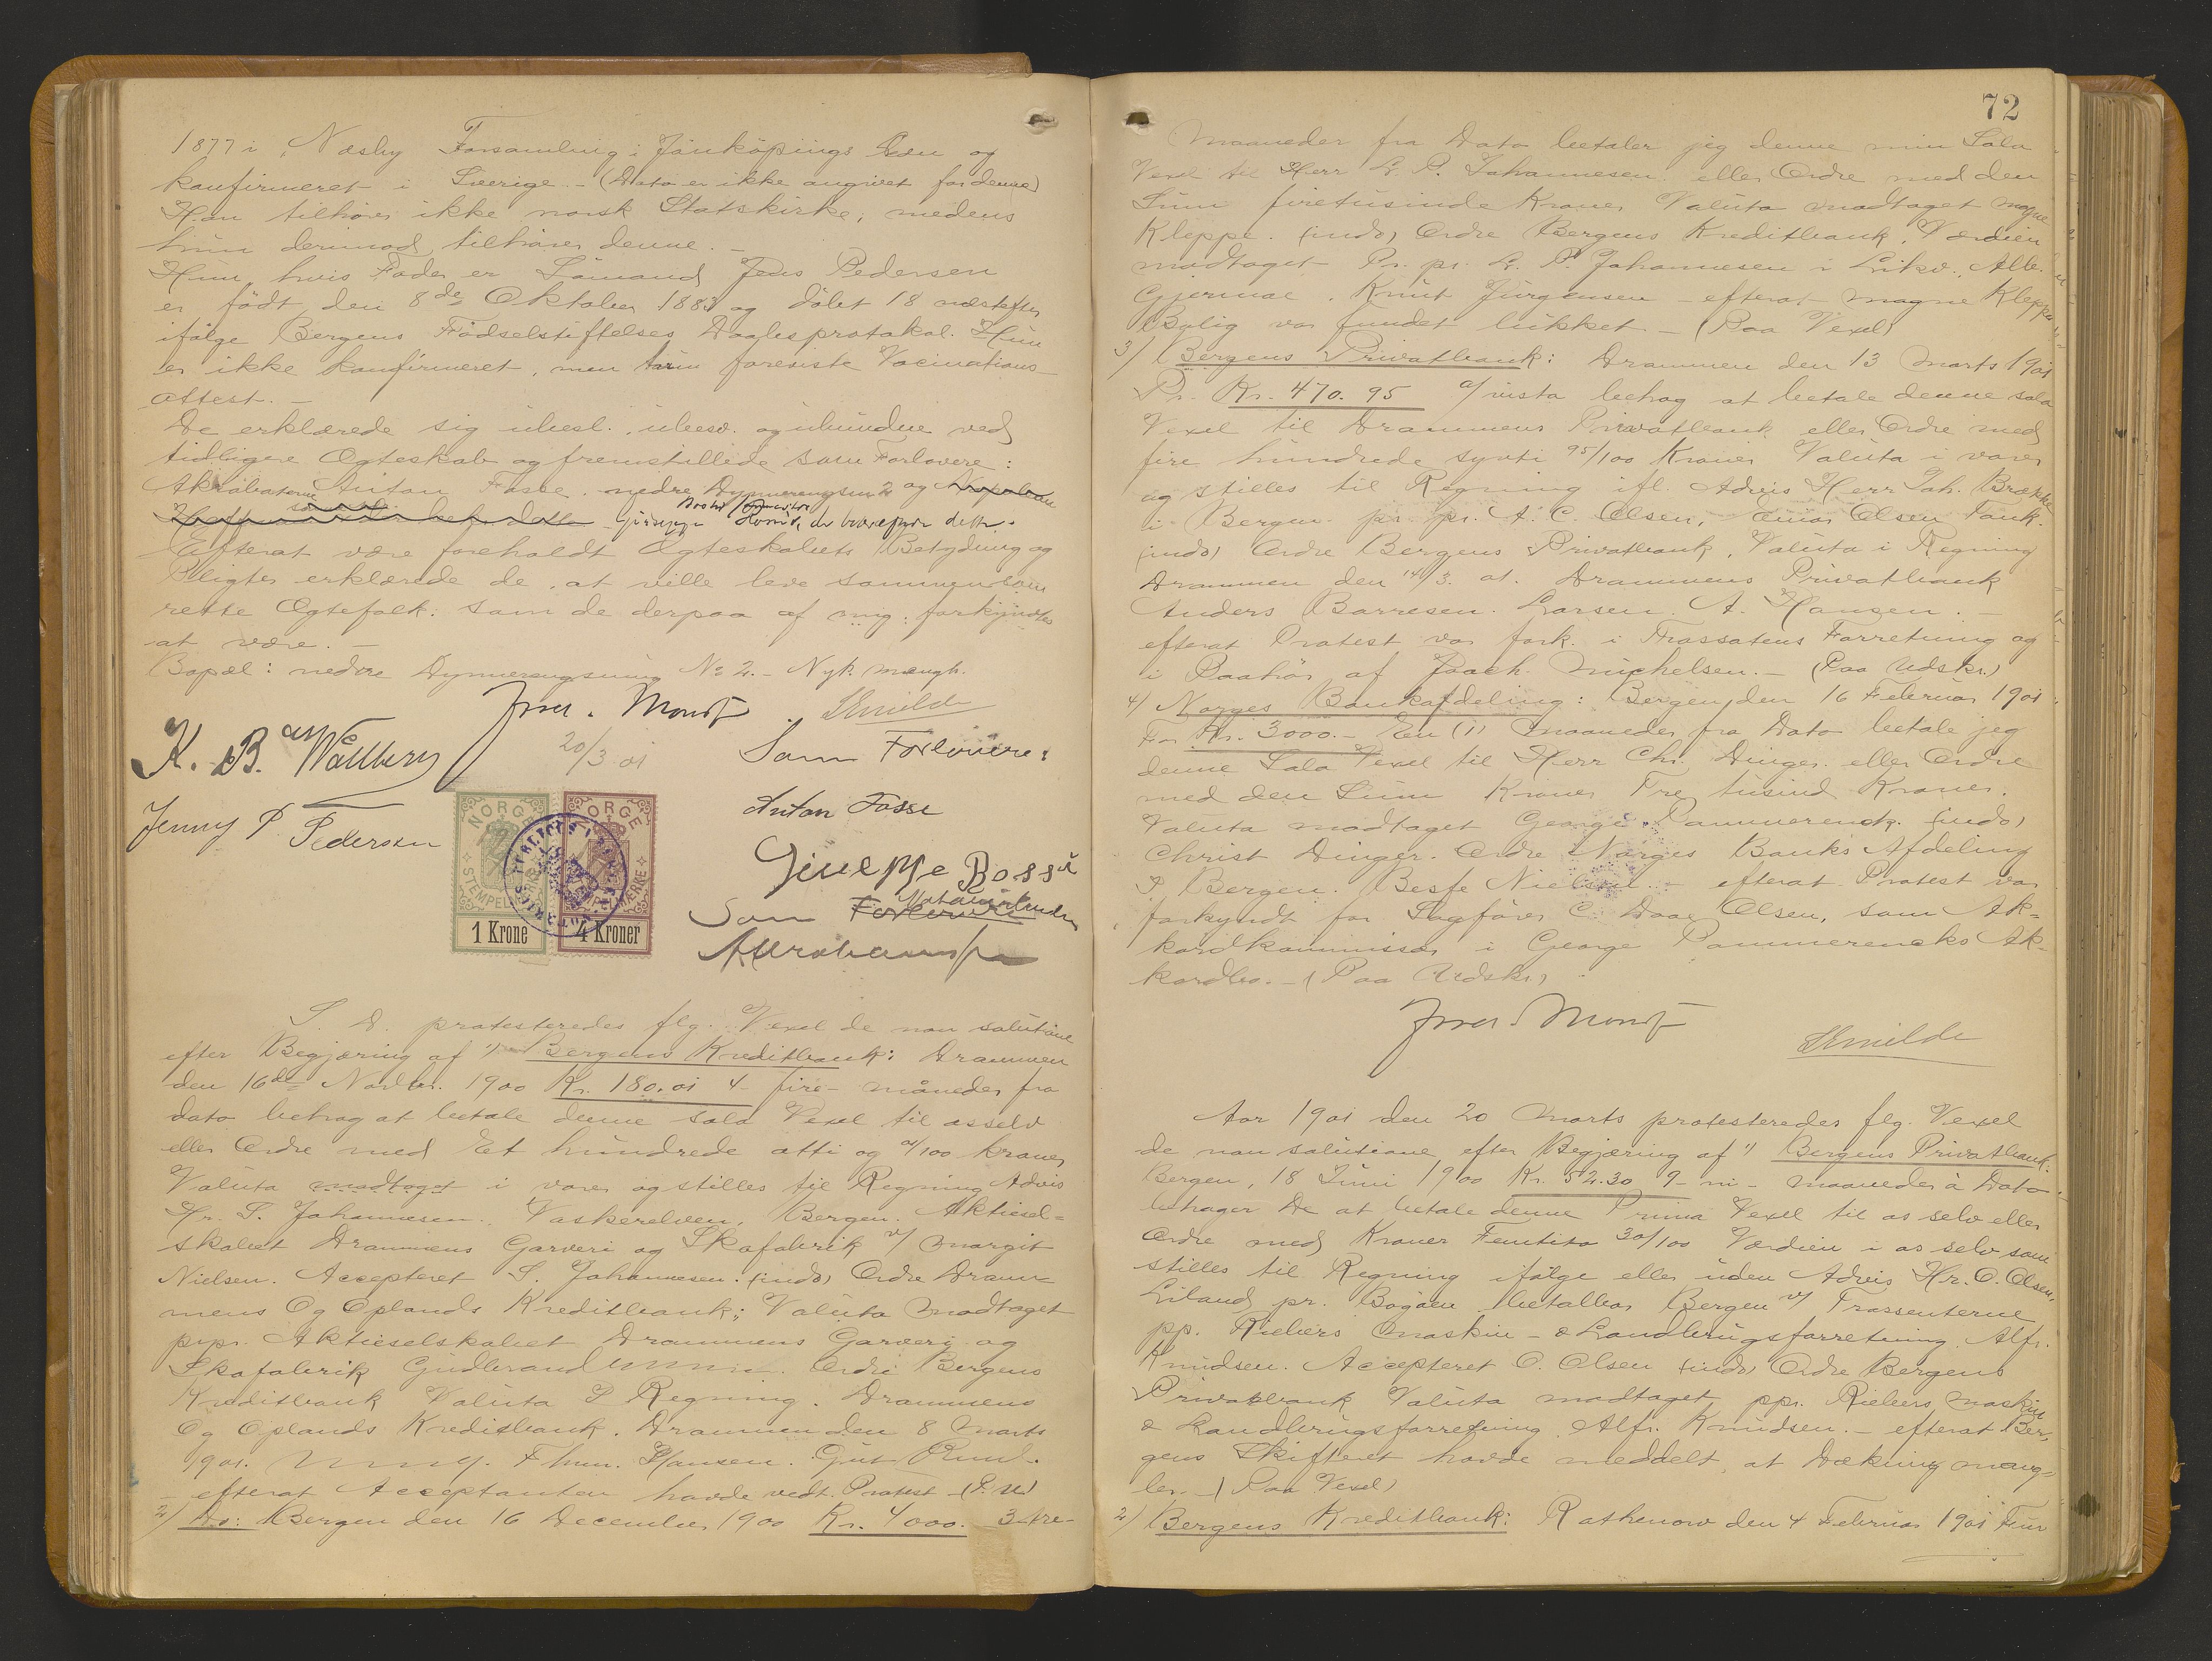 1877 i Næsby Forsamling i Jönköpings Læn og
konfirmeret i Sverige. - (Dato er ikke angivet for denne)
Han tilhører ikke norsk Statskirke, medens
hun derimod tilhører denne. -
Hun, hvis Fader er Sömand Jens Pedersen
er födt den 8de Oktober 1883 og döbt 18 næstefter
ifölge Bergens Födselstiftelses Daabsprotokol. Hun
er ikke konfirmeret, men hun foreviste Vacinations-
attest. -
De erklærede sig ubesl. ubesv. og ubundne ved
tidligere Ægteskab og fremstillede som Forlovere:
Akrobaterne Anton Fosse nedre Dynnerengsm 2 og
Giuseppe der bekræftede dette.
Efterat være foreholdt Ægteskabets Betydning og
Pligter erklærede de, at ville leve sammen som
rette Ægtefolk: som de derpaa af mig forkyndtes
at være. -
Bopæl: nedre Dynnerengsmug No 2. - Nyk. mangl.
K. B. Wallberg
Jenny P. Pedersen
20/3 01
Som Forlovere:
Anton Fosse
Giuseppe Bossi
Som Forlovere
NORGE
STEMPELMÆRKE
1 Krone
NORGE
STEMPELMÆRKE
4 Kroner
S. D. protesteredes flg. Vexel de non solutione
efter Begjæring af 1) Bergens Kreditbank: Drammen
den 16de Novbr. 1900 Kr. 180.01 4 - fire - måneder fra
dato behag at betale denne sola Vexel til osselv
eller Ordre med Et hundrede otti og 01/100 Kroner
Valuta modtaget i varer og stilles til Regning Advis
Hr. S. Johannesen. Vaskerelven, Bergen. Aktiesel-
skabet Drammens Garveri og Skofabrik v/ Margit
Nielsen. Accepteret S. Johannesen: (indo) Ordre Dram-
mens Og Oplands Kreditbank; Valuta Modtaget
prpr. Aktieselskabet Drammens Garveri og
Skofabrik Gudbrand Ordre Bergens
Kreditbank Valuta I Regning. Drammens
Og Oplands Kreditbank. Drammen den 8 Marts
1901. Hansen.
- efterat Acceptanten havde vedt. Protest - (P. U.)
2) Do: Bergen den 16 December 1900 Kr. 4000. 3 - tre -
72
Maaneder fra Dato betaler jeg denne min Sola
Vexel til Herr L. P. Johannesen eller Ordre med den
Sum firetusinde Kroner Valuta modtaget Magne
Kleppe. (indo) Ordre Bergens Kreditbank. Værdien
modtaget Pr. pr. L. P. Johannesen i Likv. Alb.
Gjermoe. Knut Jürgensen efterat Magne Kleppes
Bolig var fundet lukket. - (Paa Vexel)
3) Bergens Privatbank: Drammen den 13 Marts 1901
Pr. Kr. 470.95 a/ vista behag at betale denne sola
Vexel til Drammens Privatbank eller Ordre med
fire hundrede sytti 95/100 Kroner Valuta i varer
og stilles til Regning ifl. Advis Herr Joh. Brække
i Bergen pr. pr. A. C. Olsen, Einar Olsen Tank.
(indo) Ordre Bergens Privatbank, Valuta i Regning
Drammen den 14/3. 01. Drammens Privatbank
Anders Borresen. Larsen. A. Hansen. -
efterat Protest var fork. i Trassatens Forretning og
i Paahör af Joach. Michelsen. - (Paa Udskr.)
4) Norges Bankafdeling: Bergen den 16 Februar 1901
For Kr. 3000. - En (1) Maaneder fra Dato betale jeg
denne Sola Vexel til Herr Chr. Dinger eller Ordre
med den Sum Kroner Tre tusind Kroner.
Valuta modtaget George Pommerenck. (indo)
Christ Dinger. Ordre Norges Banks Afdeling
I Bergen. Besfe Nielsen. - efterat Protest var
forkyndt for Sagförer C. Daae Olsen, som Ak-
kordkommissær i George Pommerencks Ak-
kordbo. - (Paa Udskr.)
Aar 1901 den 20 Marts protesteredes flg. Vexel
de non solutione efter Begjæring af 1) Bergens Privatbank.
Bergen, 18 Juni 1900 Kr. 52.30 9 - ni - maaneder à Dato
behager De at betale denne Prima Vexel til os selv eller
Ordre med Kroner Femtito 30/100 Værdien i os selv som
stilles til Regning ifölge eller uden Advis Hr. O. Olsen,
Liland pr. Bogöen betalbar Bergen v/ Trassenterne
pp. Riebers Maskin- & Landbrugsforretning. Alfr.
Knudsen. Accepteret O. Olsen (indo) Ordre Bergens
Privatbank Valuta modtaget ppr. Riebers Maskin
& Landbrugsforretning. Alfr. Knudsen. - efterat Ber-
gens Skifteret havde meddelt, at Dækning mang-
ler. - (Paa Vexel)
2) Bergens Kreditbank: Rathenow den 4 Februar 1901 Für